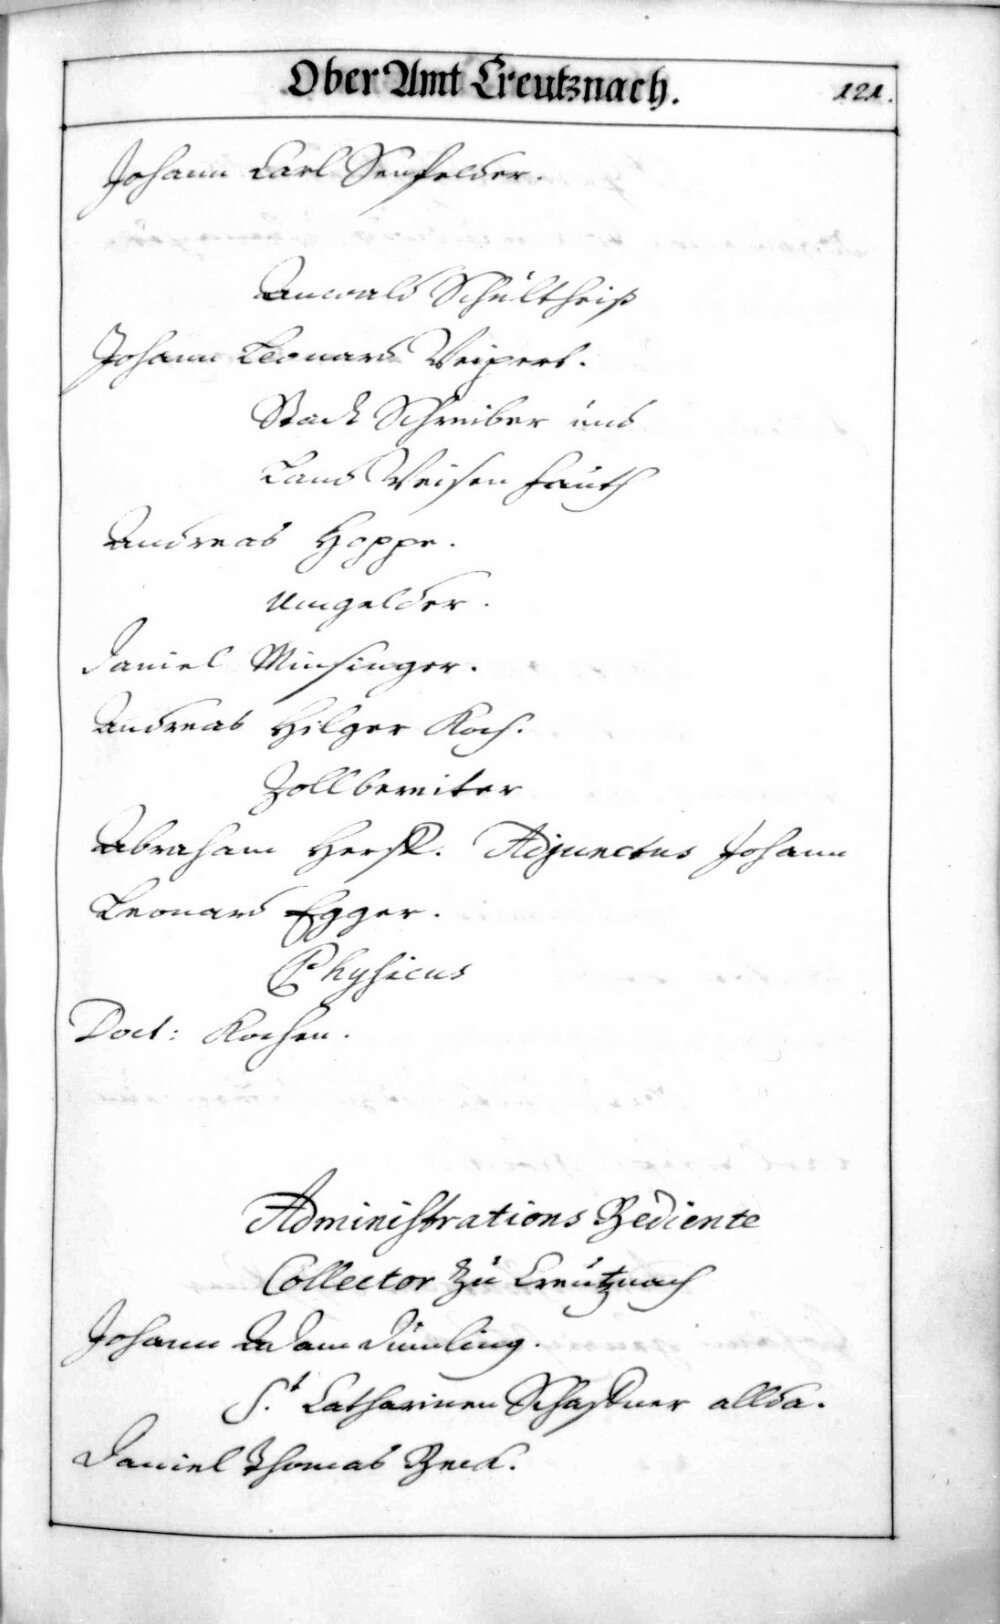 Ober Amt Creutznach.
121.
Johann Carl Senfelder.
Anwald Schultheiß
Johann Leonard Weipert.
Stadt Schreiber und
Land Weisen Fauth
Andreas Hoppe.
Umgelder.
Daniel Minsinger.
Andreas Hilger Koch.
Zollbereiter
Abraham Adjunctus Johann
Leonard Egger.
Physicus
Doct: Kochen.
Administrations Bediente
Collector zu Creutznach
Johann Adam Dümling.
S.t Catharinen Schaffner allda.
Daniel Thomas Beck.